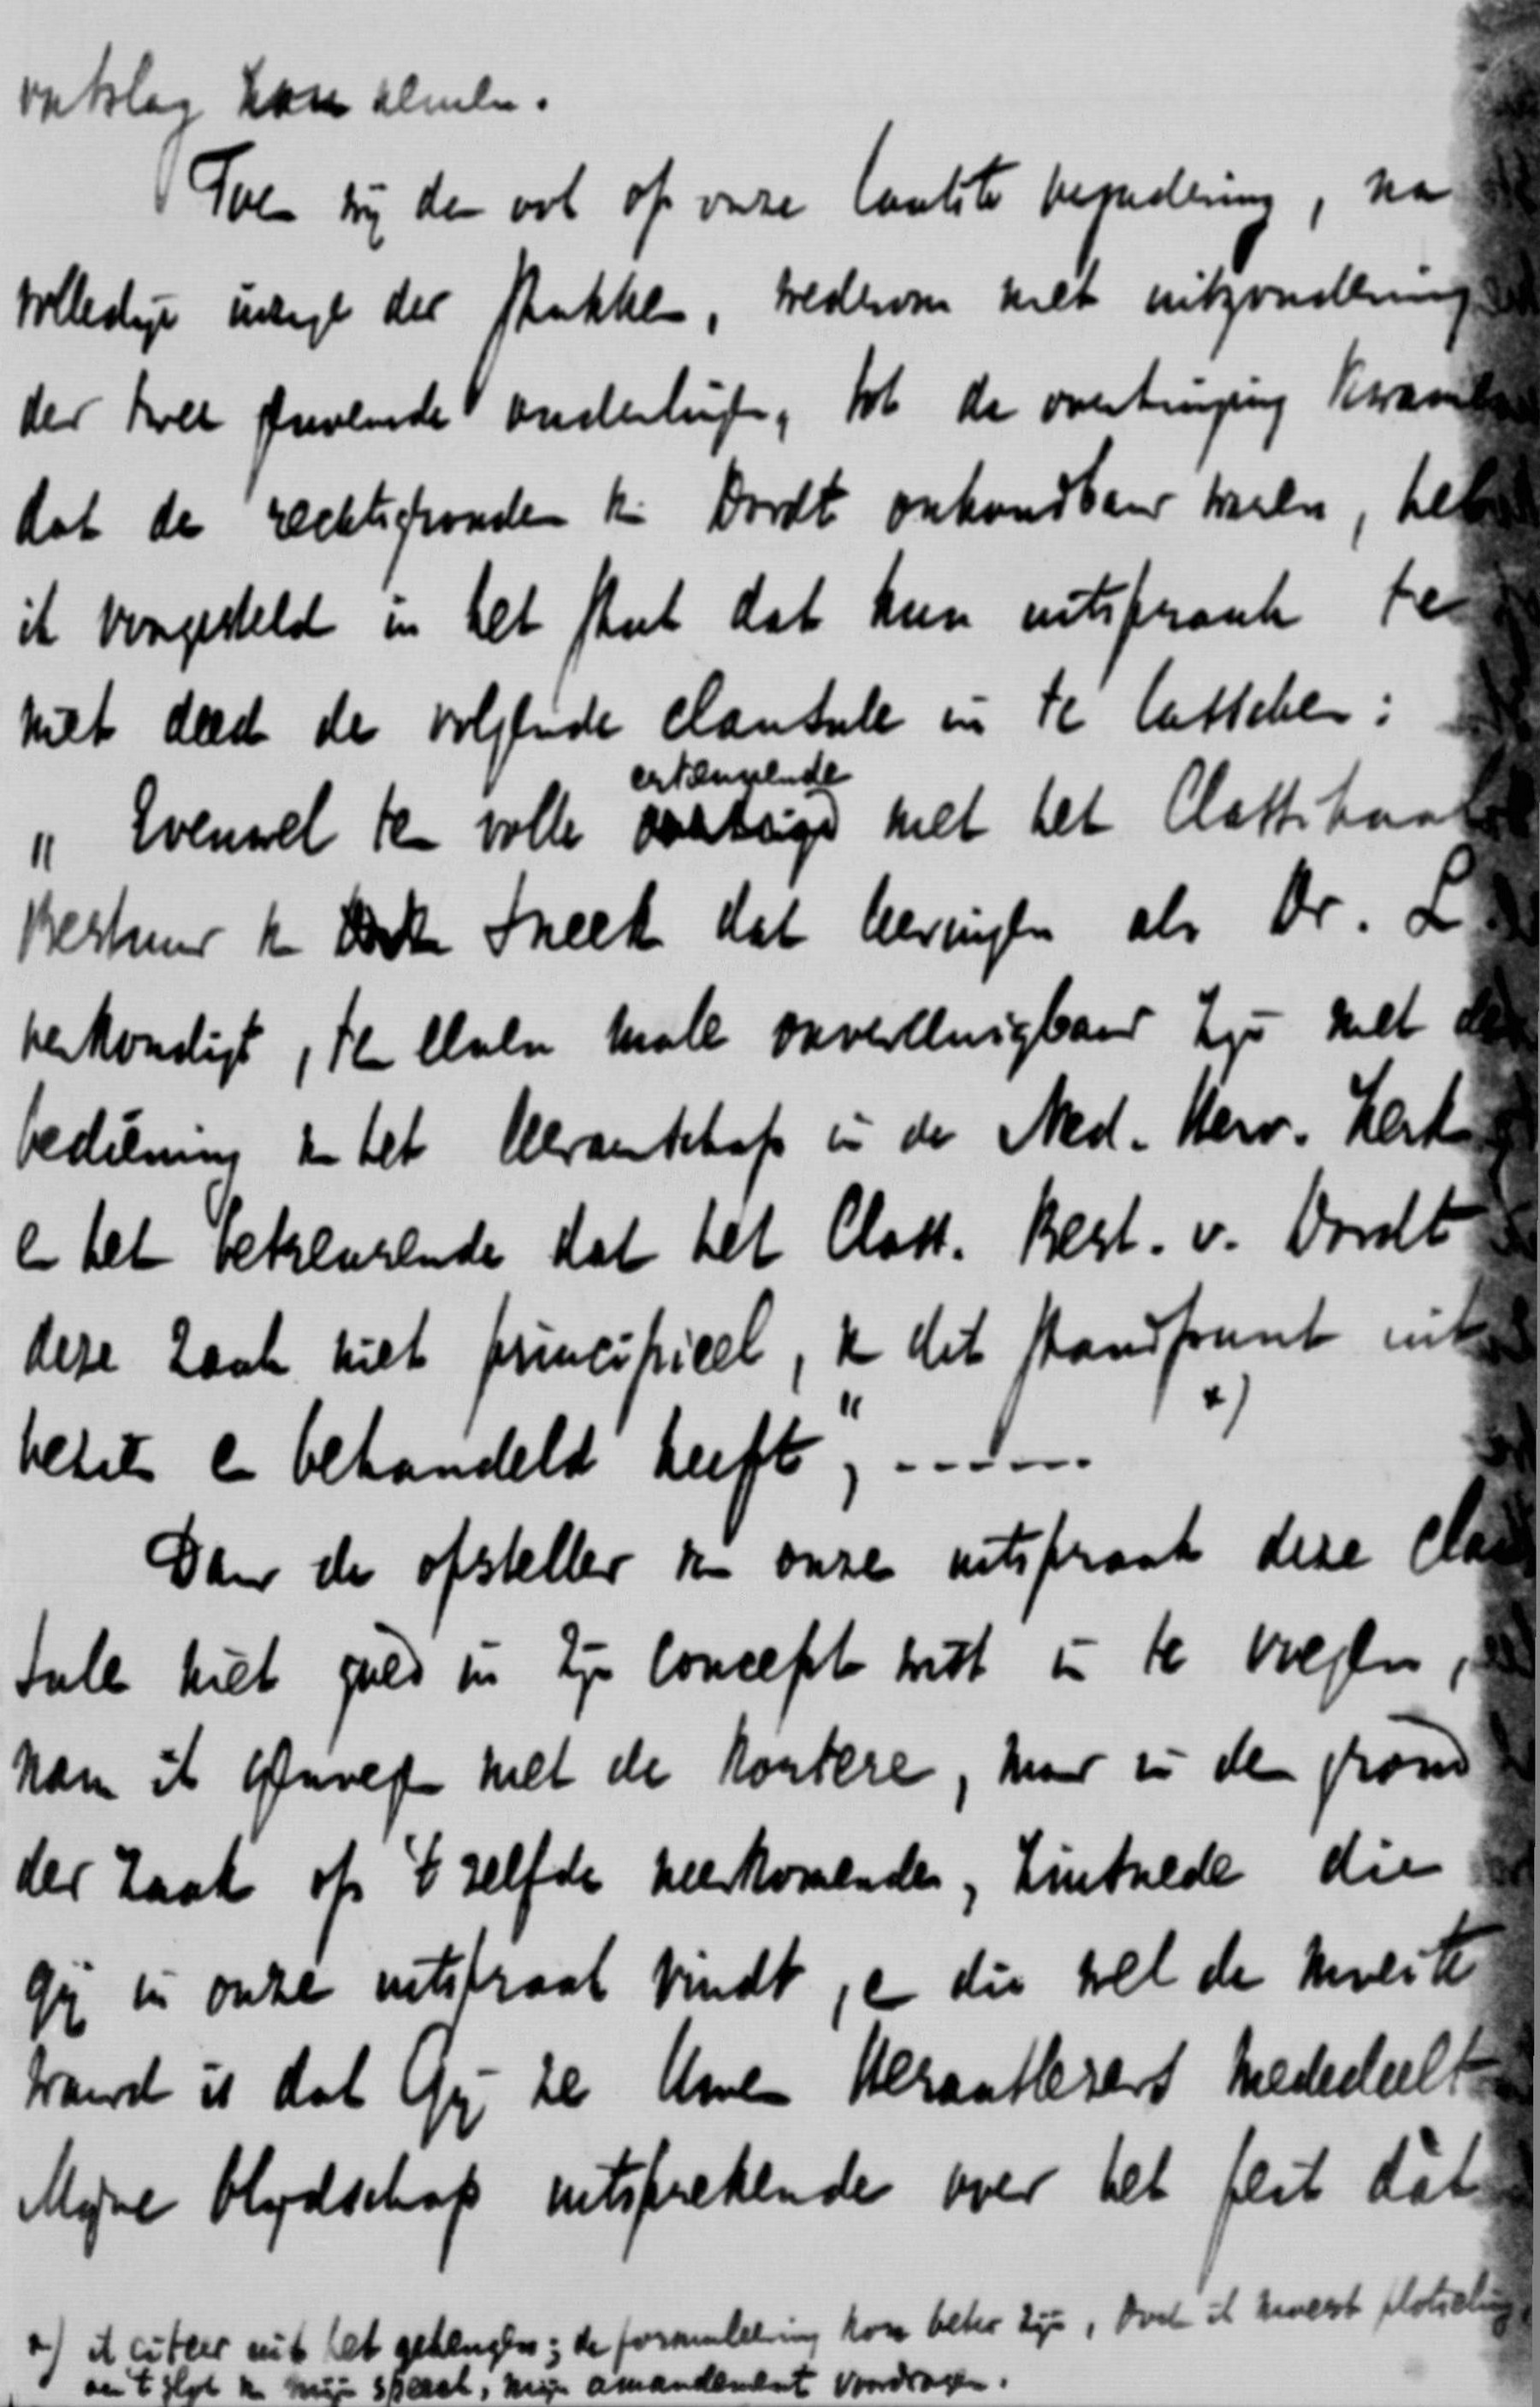 ontslag kon nemen.
Toen wij dan ook op onze laatste vergadering, na
volledige inzage der stukken, wederom met uitzondering
der twee genoemde ouderlingen, tot de overtuiging kwamen
dat de rechtsgronden v. Dordt onhoudbaar waren, heb
ik voorgesteld in het slot van hun uitspraak te
niet deed de volgende clausule in te lasschen:
" Evenwel ten volle erkennende met het Classikaal
Bestuur v. Sneek dat leeringen als Dr. L.
verkondigt, ten eenen male onvereenigbaar zijn met de
bediening van het leeraarschap in de Ned. Herv. Kerk
en het betreurende dat het Class. Best. v. Dordt
deze zaak niet principieel, van dit standpunt uit
bezien en behandeld heeft", -----. *)
Daar de opsteller van onze uitspraak deze clau
sule niet goed in zijn concept wist in te voegen,
nam ik genoegen met de kortere, maar in den grond
der zaak op 't zelfde neerkomende, zinsnede die
gij in onze uitspraak vindt, en die wel de moeite
waard is dat Gij ze Uwen Herautlezers mededeelt
Mijne blijdschap uitsprekende over het feit dat
*) ik citeer uit het geheugen; de formuleering kon beter zijn, doch ik moest plotseling
aan 't slot van mijn speech, mijn amandement voordragen.